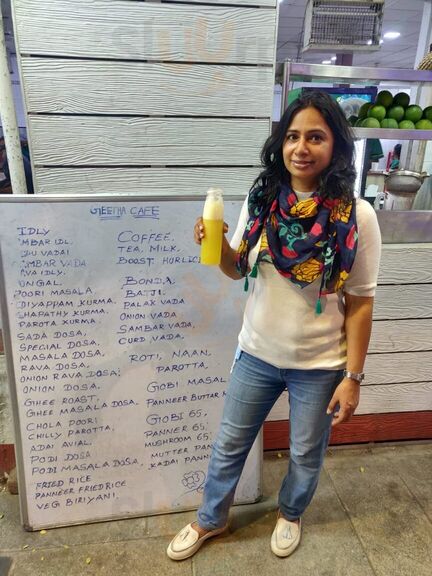 GEETHA CAFE
IDLY
MBAR IDL.
DU VADAI
MBAR VADA
VA IDLY.
UNGAL.
POORI MASALA
DIYAPPAM KURMA.
CHAPATHY KURMA.
PAROTA KURMA.
SADA DOSA,
SPECIAL DOSA.
MASALA DOSA,
RAVA DOSA,
ONION RAVA DOSA,
ONION DOSA.
GHEE ROAST.
GHEE MASALA DOSA.
CHOLA POORI
CHILLY PARROTA,
ADAI AVIAL.
PODI DOSA
PODI MASALA DOSA.
FRIED RICE
PANNEER FRIED RICE
VEG BIRIYANI.
COFFEE.
TEA, MILK,
BOOST HORLIC
BONDA.
BAJJI.
PALAK VADA
ONION VADA
SAMBAR VADA,
CURD VADA.
ROTI, NAAN.
PAROTTA,
GOBI MASAL
PANNEER BUTTAR M
GIOBI 65,
PANNER 65,
MUSHROOM 65,
MUTTER PAN
KADAI PANN